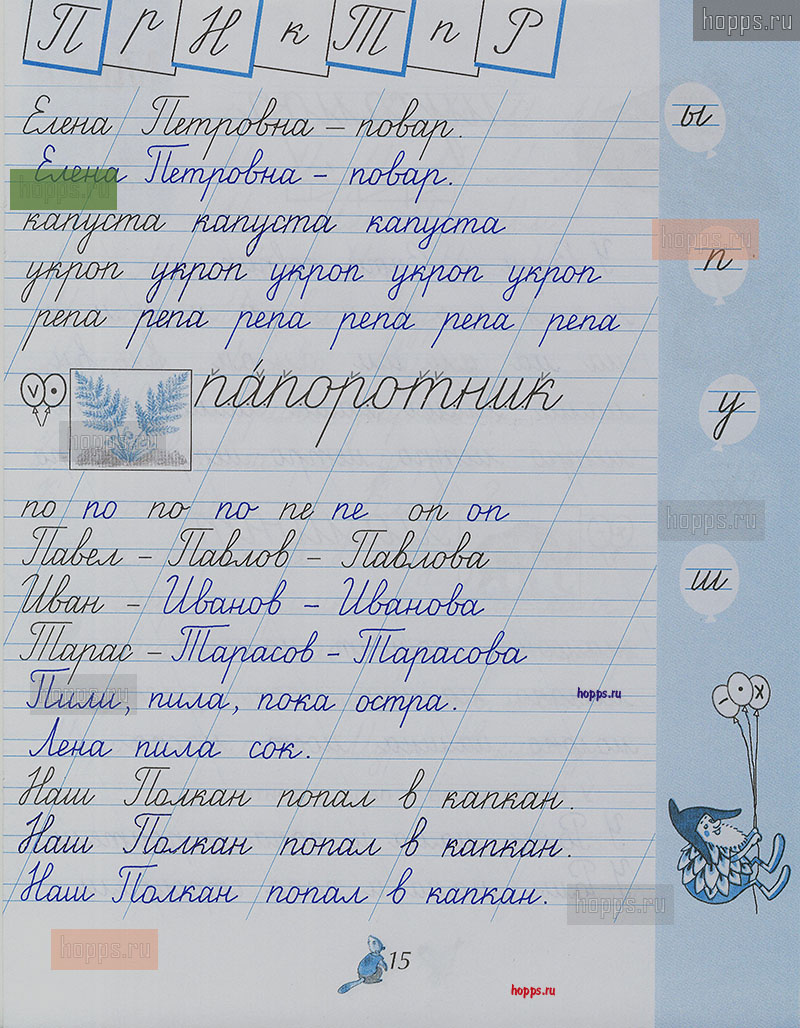 hopps.ru
П р Н к Т п Р
Елена Петровна – повар.
Елена Петровна – повар.
hopps.ru
капуста капуста капуста
укроп укроп укроп укроп укроп
репа репа репа репа репа репа
v •
па́поротник
hopps.ru
по по по по пе пе оп оп
Павел – Павлов – Павлова
Иван – Иванов – Иванова
Тарас – Тарасов – Тарасова
Пили, пила, пока остра.
hopps.ru
hopps.ru
Лена пила сок.
Наш Полкан попал в капкан.
Наш Полкан попал в капкан.
Наш Полкан попал в капкан.
hopps.ru
hopps.ru
15
hopps.ru
ы
hopps.ru
п
у
hopps.ru
ш
– • x